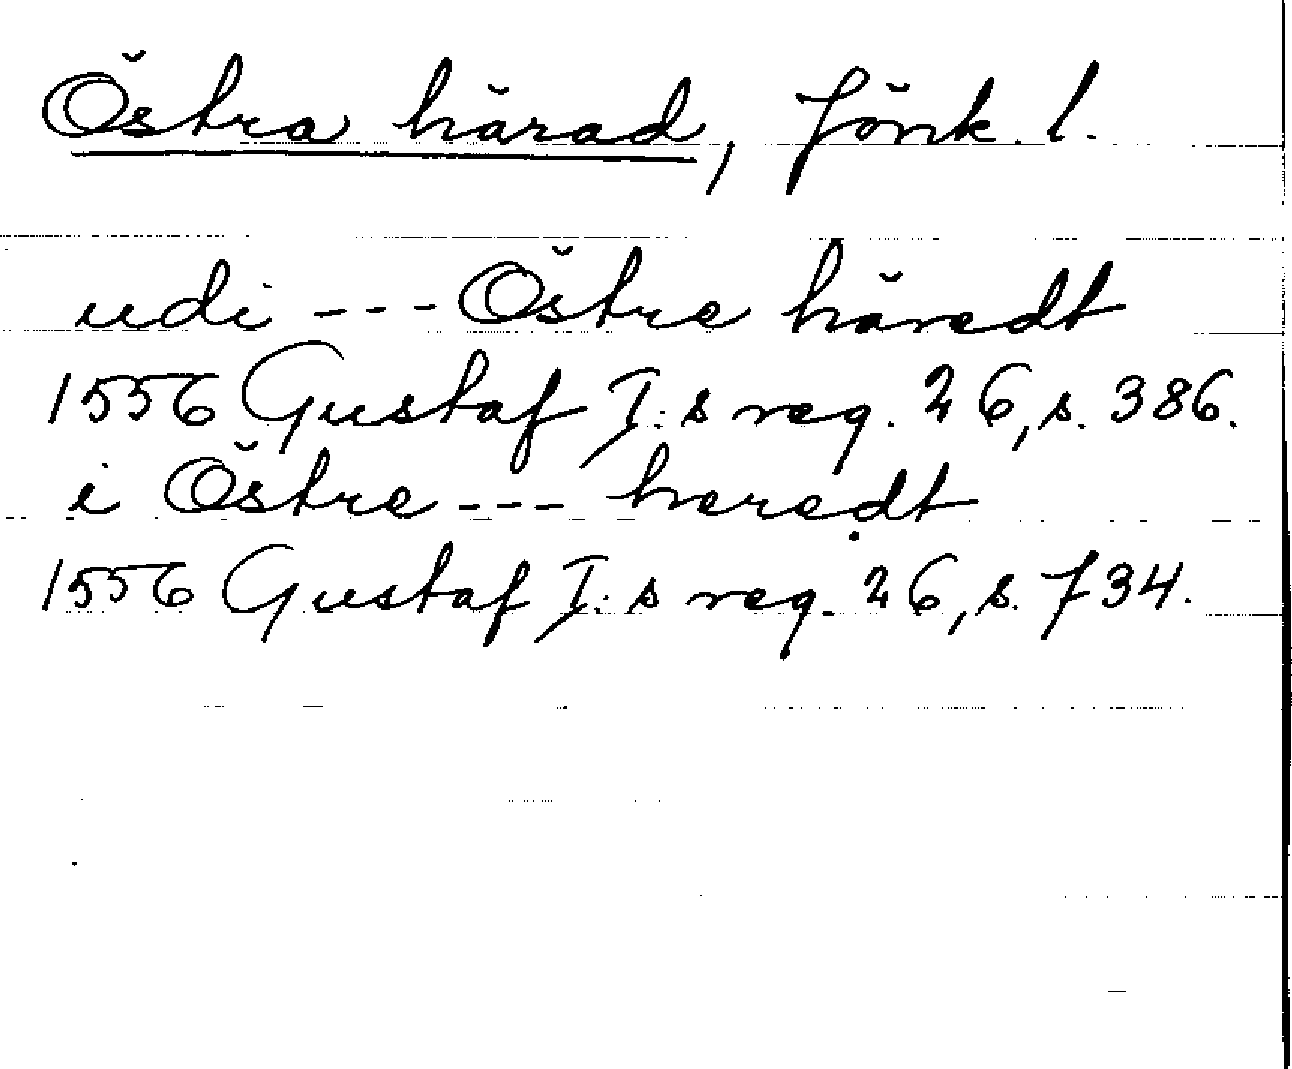 Östra härad, Jönk. l.
udi --- Östre häredt
1556 Gustaf I:s reg. 26, s. 386.
i Östre --- heredt
1556 Gustaf I:s reg. 26, s. 734.